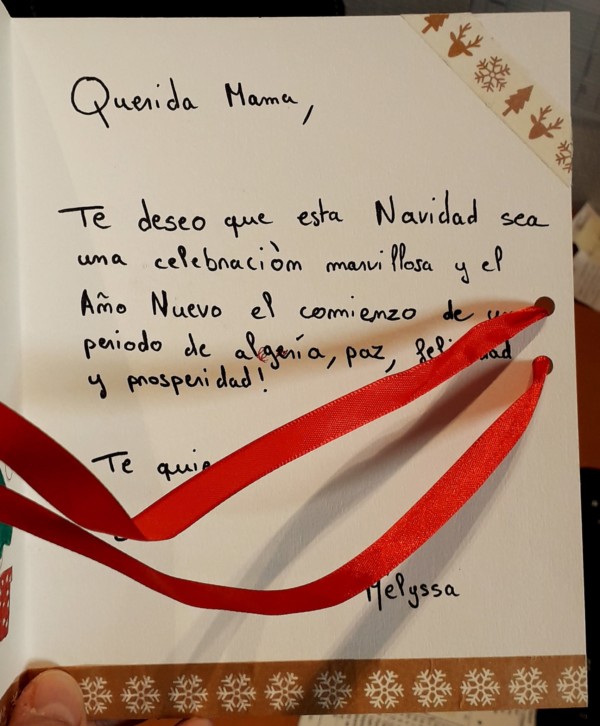 Querida Mama,
Te deseo que esta Navidad sea
una celebraciòn marvillosa y el
Año Nuevo el comienzo de
periodo de algería, paz,
y prosperidad!
Te
Melyssa